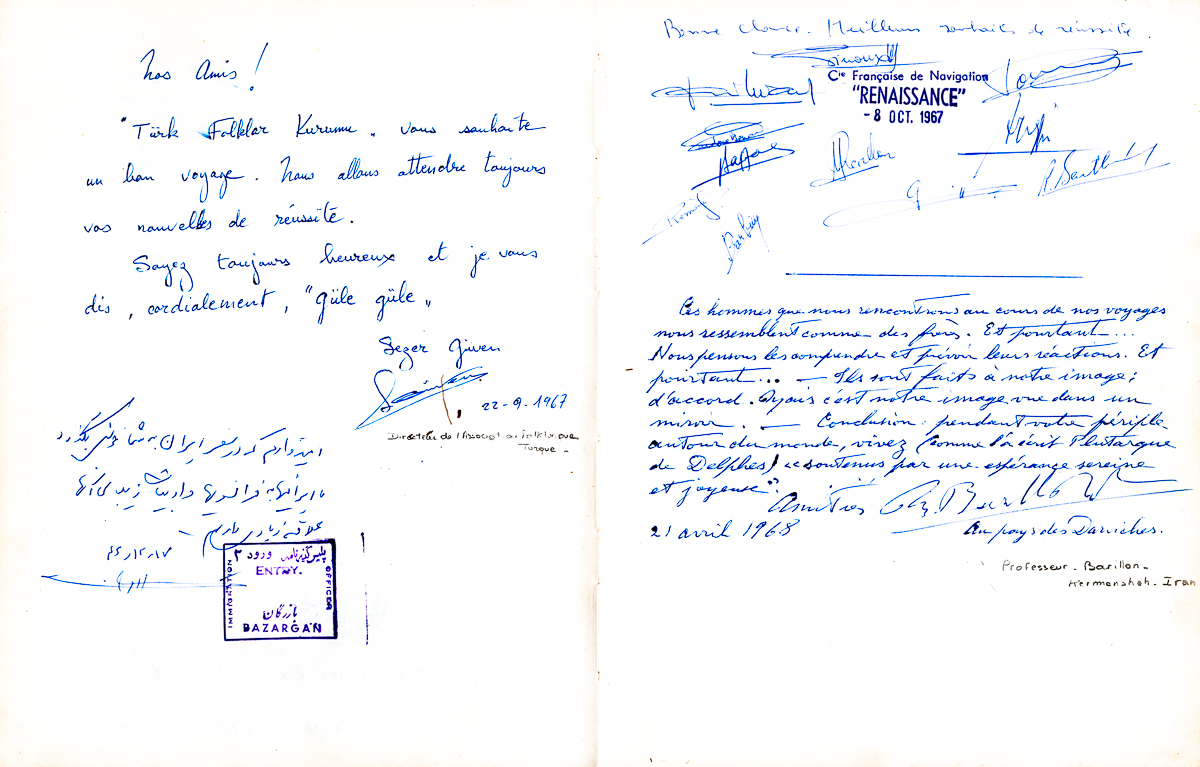 Nos Amis !
"Türk Folklor Kurumu" vous souhaite
un bon voyage. Nous allons attendre toujours
vos nouvelles de réussité.
Soyez toujours heureux et je vous
dis, cordialement, "güle güle"
Sezer Güven
22-9-1967
Directeur de l'Associat. ou Folklorique
Turque -
امیدوارم که در سفر ایران به شما خوش بگذرد
ما ایرانیها به فرانسویها و ادبیات زیبای آنها
علاقه زیادی داریم
۴۶/۱۲/۱۷
پلیس گذرنامه ورود ۲
ENTRY.
IMMIGRATION
OFFICER
بازرگان
BAZARGAN
Bonne chance. Meilleurs souhaits de réussite.
Cie Française de Navigation
"RENAISSANCE"
- 8 OCT. 1967
R. Barth
Ces hommes que nous rencontrons au cours de nos voyages
nous ressemblent comme des frères. Et pourtant...
Nous pensons les comprendre et prévoir leurs réactions. Et
pourtant... — Ils sont faits à notre image;
d'accord. Mais c'est notre image vue dans un
miroir. — Conclusion: pendant votre périple
autour du monde, vivez (comme l'a écrit Plutarque
de Delphes) "soutenus par une espérance sereine
et joyeuse".
Amitiés
21 avril 1968
Au pays des Darviches.
Professeur. Barillon.
Kermanshah. Iran